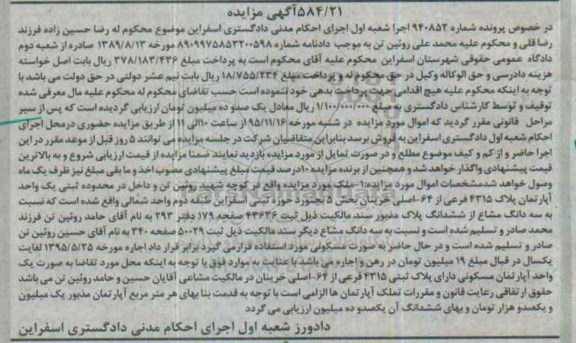 ۵۸۴/۲۱آگهی مزایده
در خصوص پرونده شماره ۹۴۰۸۵۲ اجرا شعبه اول اجرای احکام مدنی دادگستری اسفراین موضوع محکوم له رضا حسین زاده فرزند
رضا قلی و محکوم علیه محمد علی روئین تن به موجب دادنامه شماره ۸۹۰۹۹۷۵۸۵۳۲۰۰۵۹۸ مورخه ۱۳۸۹/۸/۱۳ صادره از شعبه دوم
دادگاه عمومی حقوقی شهرستان اسفراین محکوم علیه آقای محکوم است به پرداخت مبلغ ۳۷۸/۱۸۳/۴۳۶ ریال بابت اصل خواسته
هزینه دادرسی و حق الوکاله وکیل در حق محکوم له و پرداخت مبلغ ۱۸/۷۵۵/۲۳۴ ریال بابت نیم عشر دولتی در حق دولت می باشد با
توجه به اینکه محکوم علیه هیچ اقدامی جهت پرداخت بدهی خود ننموده است حسب تقاضای محکوم له محکوم علیه مال معرفی شده
توقیف و توسط کارشناس دادگستری به مبلغ ۱/۱۰۰/۰۰۰/۰۰۰ ریال معادل یک صد و ده میلیون تومان ارزیابی گردیده است که پس از سیر
مراحل قانونی مقرر گردید که اموال مورد مزایده در شنبه مورخه ۹۵/۱۱/۱۶ از ساعت ۱۰الی ۱۱ از طریق مزایده حضوری درمحل اجرای
احکام شعبه اول دادگستری اسفراین به فروش برسد بنابراین متقاضیان شرکت در جلسه مزایده می توانند ۵ روز قبل از موعد مقرر در این
اجرا حاضر و از کم و کیف موضوع مطلع و در صورت تمایل از مورد مزایده بازدید نمایند ضمنا مزایده از قیمت ارزیابی شروع و به بالاترین
قیمت پیشنهادی واگذار خواهد شد و همچنین از برنده مزایده ۱۰درصد قیمت مبلغ پیشنهادی مصوب اخذ و ما بقی مبلغ نیز ظرف یک ماه
وصول خواهد شد.مشخصات اموال مورد مزایده۱- ملک مورد مزایده واقع در کوچه شهید روئین تن و داخل در محدوده ثبتی یک واحد
آپارتمان پلاک ۴۳۱۵ فرعی از ۶۴-اصلی خربتان بخش ۵ بجنورد حوزه ثبتی اسفراین طبقه دوم واحد شمالی واقع شده است که نسبت
به سه دانگ مشاع از ششدانگ پلاک مذبور سند مالکیت ذیل ثبت ۴۳۶۳۶ صفحه ۱۷۹ دفتر ۲۹۳ به نام آقای حامد روئین تن فرزند
محمد صادر و تسلیم شده است و نسبت به سه دانگ مشاع دیگر سند مالکیت ذیل ثبت ۵۰۰۲۹ صفحه ۳۴۰ به نام آقای حسین روئین تن
صادر و تسلیم شده است و در حال حاضر به صورت مسکونی مورد استفاده قرار می گیرد برابر قرار داد اجاره مورخه ۱۳۹۵/۵/۲۵ لغایت
یکسال در قبال مبلغ ۱۹ میلیون تومان در رهن و اجاره می باشد با عنایت به موارد فوق با توجه به اینکه محل مورد تقاضا به صورت یک
واحد آپارتمان مسکونی دارای پلاک ثبتی ۴۳۱۵ فرعی از ۶۴-اصلی خربتان در مالکیت مشاعی آقایان حسین و حامد روئین تن می باشد
حقوق ارتفاقی رعایت قانون و مقررات تملک آپارتمان ها الزامی است با توجه به قدمت بنا بهای هر متر مربع آپارتمان مذبور یک میلیون
و یکصدو هزار تومان و بهای ششدانگ آن یکصدو ده میلیون ارزیابی می گردد
دادورز شعبه اول اجرای احکام مدنی دادگستری اسفراین